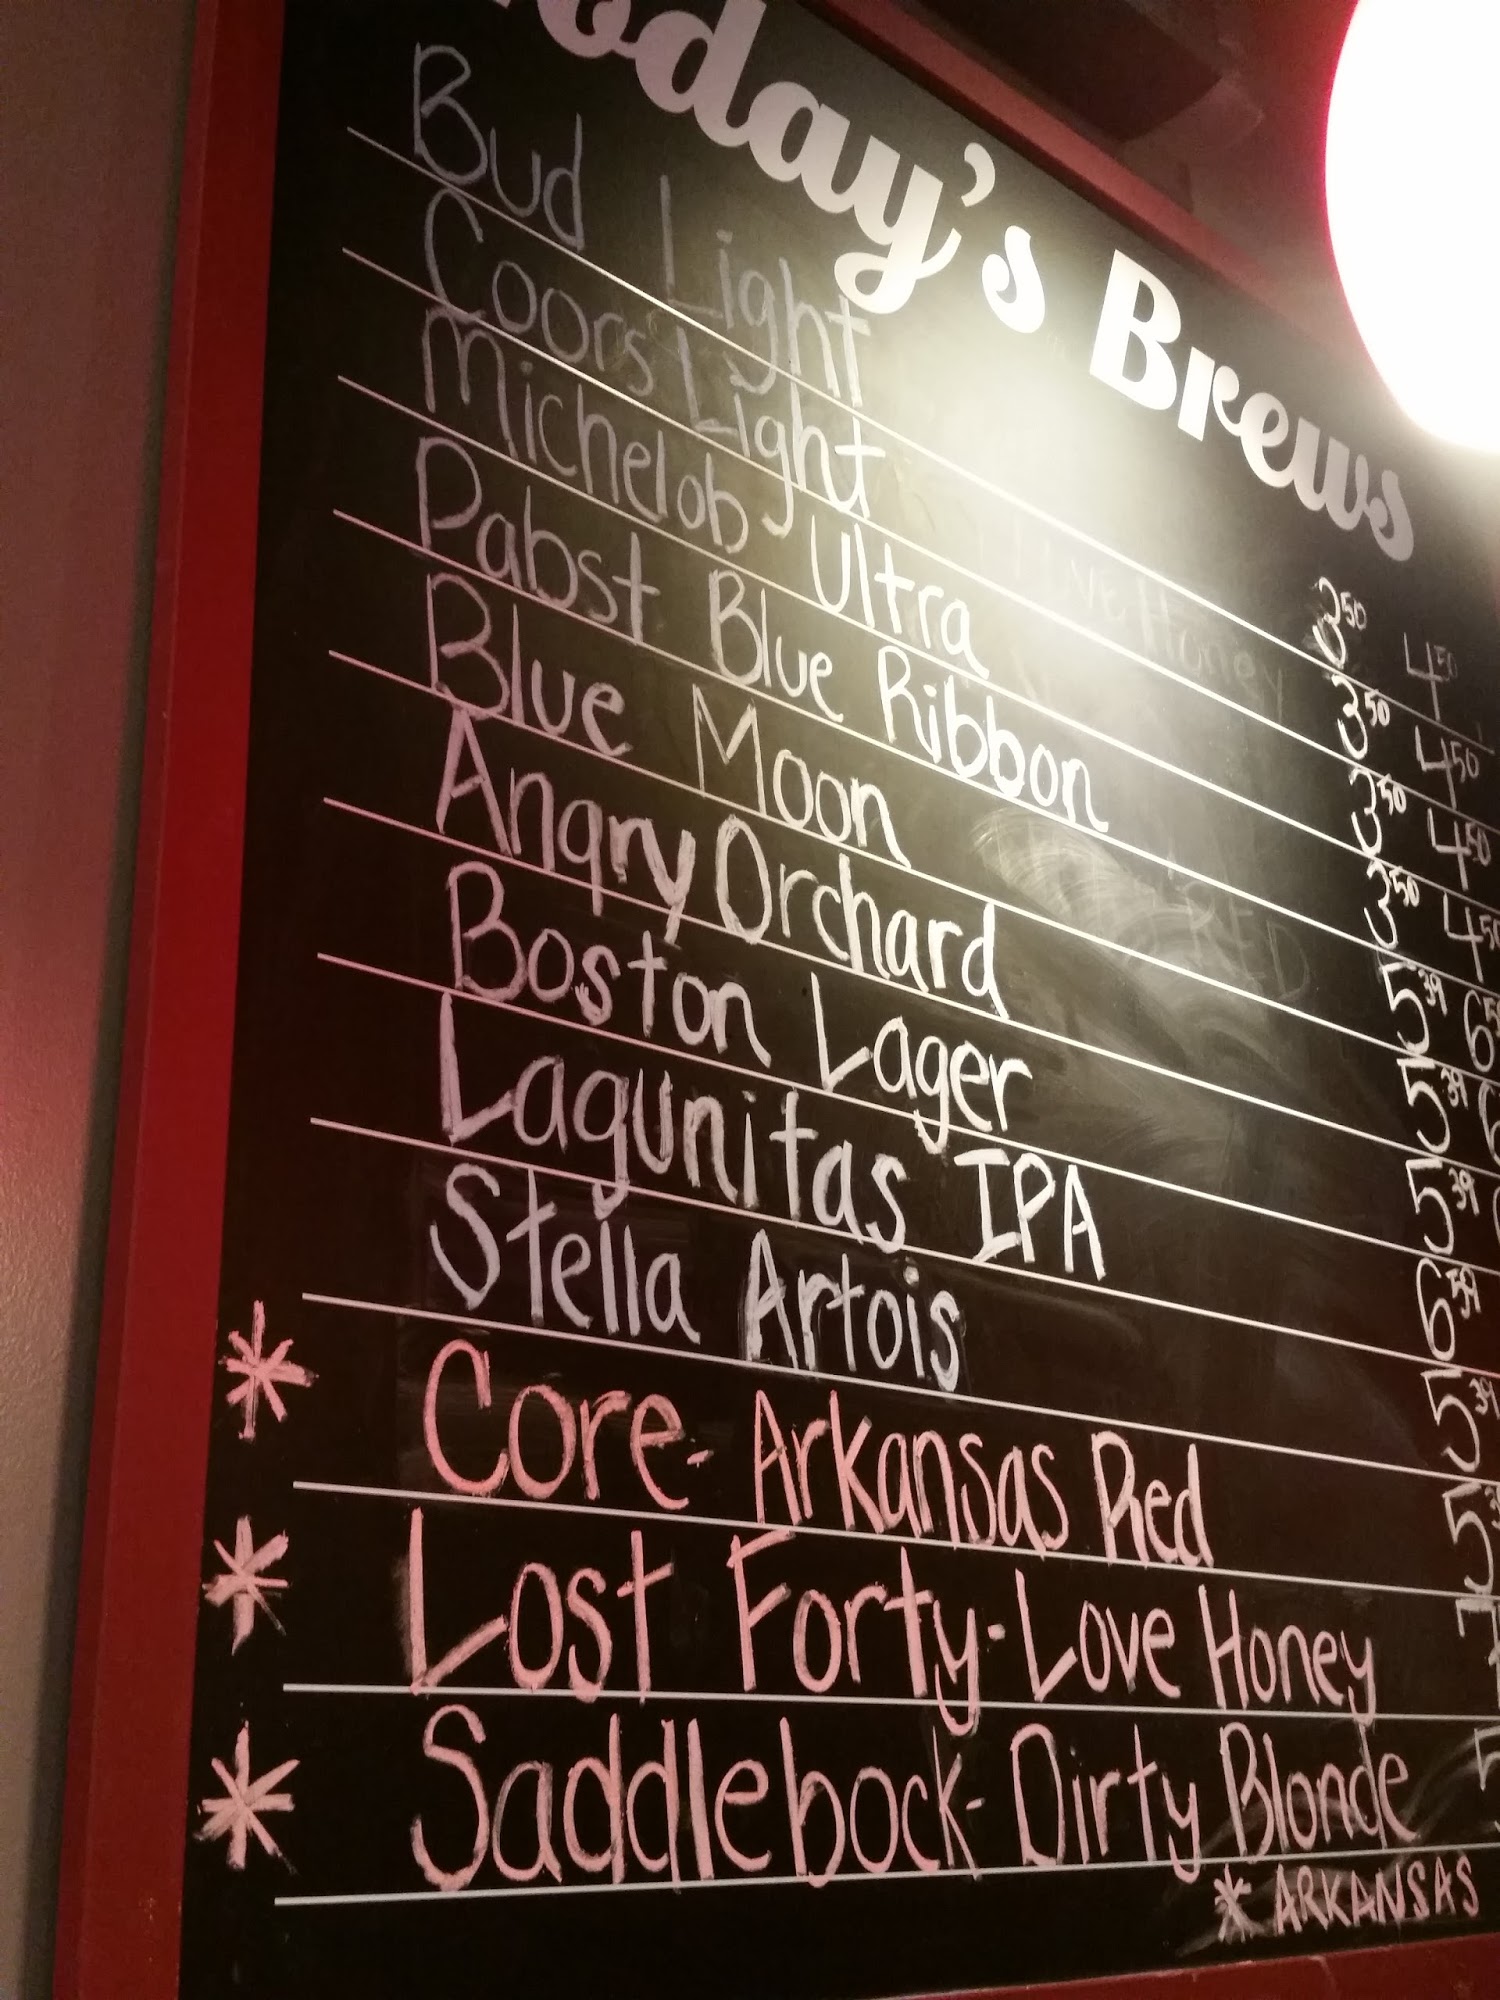 Today's Brews
Bud Light 3 50 4 50
Coors Light 3 50 4 50
Michelob Ultra 3 50 4 50
Pabst Blue Ribbon 3 50 4 50
Blue Moon 5 39 6
Angry Orchard 5 39
Boston Lager 5 39
Lagunitas IPA 6 59
Stella Artois 5 39
* Core - Arkansas Red 5
* Lost Forty - Love Honey
* Saddlebock - Dirty Blonde 5
* ARKANSAS